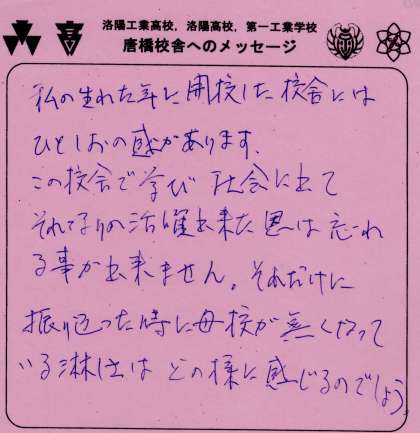 洛陽工業高校，洛陽高校，第一工業学校
唐橋校舎へのメッセージ
私の生れた年に開校した校舎には
ひとしおの感があります。
この校舎で学び 社会に出て
それなりの活躍出来た恩は忘れ
る事が出来ません。それだけに
振り返った時に母校が無くなって
いる淋しさは どの様に感じるのでしょう。